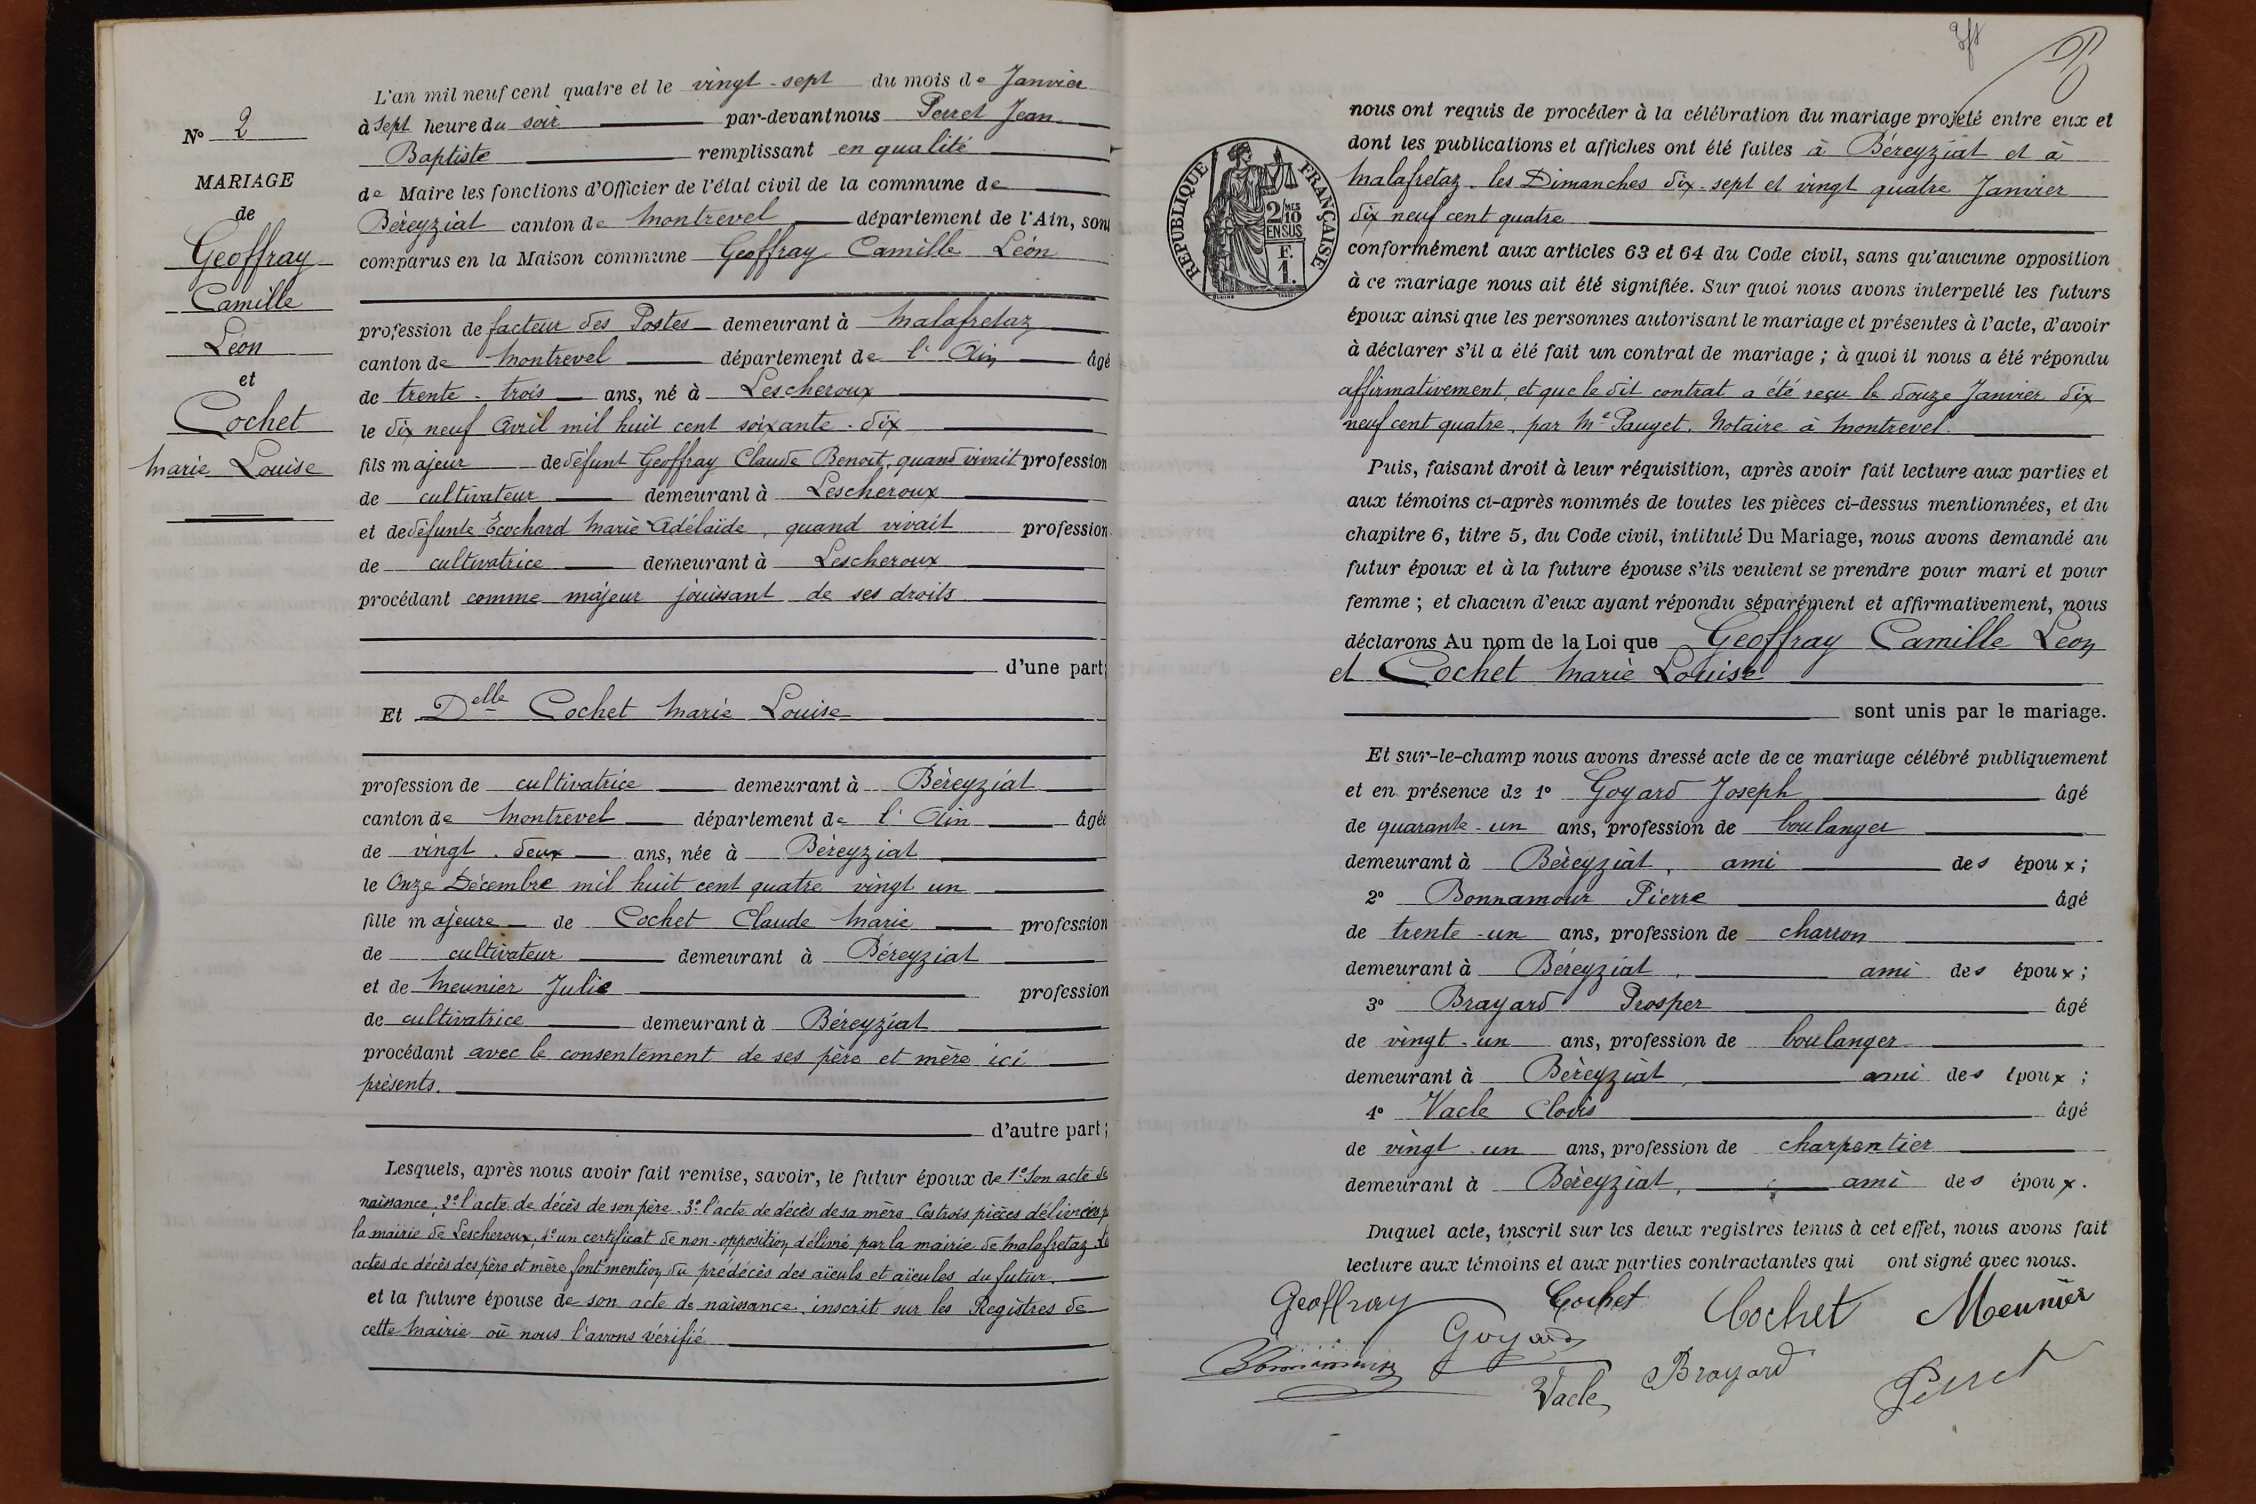 N° 2
MARIAGE
de
Geoffray
Camille
Léon
et
Cochet
Marie Louise
L'an mil neuf cent quatre et le vingt-sept du mois de Janvier
à sept heure du soir par-devant nous Perret Jean-
Baptiste remplissant en qualité
de Maire les fonctions d'Officier de l'état civil de la commune de
Béreyziat canton de Montrevel département de l'Ain, sont
comparus en la Maison commune Geoffray Camille Léon
profession de facteur des Postes demeurant à Malafretaz
canton de Montrevel département de l'Ain âgé
de trente-trois ans, né à Lescheroux
le dix neuf Avril mil huit cent soixante-dix
fils majeur de défunt Geoffray Claude Benoit, quand vivait profession
de cultivateur demeurant à Lescheroux
et de défunte Ecochard Marie Adélaïde, quand vivait profession
de cultivatrice demeurant à Lescheroux
procédant comme majeur jouissant de ses droits
d'une part;
Et Delle Cochet Marie Louise
profession de cultivatrice demeurant à Béreyziat
canton de Montrevel département de l'Ain âgée
de vingt-deux ans, née à Béreyziat
le Onze Décembre mil huit cent quatre vingt un
fille majeure de Cochet Claude Marie profession
de cultivateur demeurant à Béreyziat
et de Meunier Julie profession
de cultivatrice demeurant à Béreyziat
procédant avec le consentement de ses père et mère ici
présents.
d'autre part;
Lesquels, après nous avoir fait remise, savoir, le futur époux de 1° Son acte de
naissance. 2° l'acte de décès de son père. 3° l'acte de décès de sa mère. Ces trois pièces délivrées p
la mairie de Lescheroux, 4° un certificat de non-opposition délivré par la mairie de Malafretaz. Les
actes de décès des père et mère font mention du prédécès des aïeuls et aïeules du futur.
et la future épouse de son acte de naissance inscrit sur les Registres de
cette Mairie où nous l'avons vérifié
RÉPUBLIQUE FRANÇAISE
2/10 MES
EN SUS
F.
1.
nous ont requis de procéder à la célébration du mariage projeté entre eux et
dont les publications et affiches ont été faites à Béreyziat et à
Malafretaz. les Dimanches dix-sept et vingt quatre Janvier
dix neuf cent quatre
conformément aux articles 63 et 64 du Code civil, sans qu'aucune opposition
à ce mariage nous ait été signifiée. Sur quoi nous avons interpellé les futurs
époux ainsi que les personnes autorisant le mariage et présentes à l'acte, d'avoir
à déclarer s'il a été fait un contrat de mariage; à quoi il nous a été répondu
affirmativement, et que le dit contrat a été reçu le douze Janvier dix
neuf cent quatre, par Me Pauget. Notaire à Montrevel.
Puis, faisant droit à leur réquisition, après avoir fait lecture aux parties et
aux témoins ci-après nommés de toutes les pièces ci-dessus mentionnées, et du
chapitre 6, titre 5, du Code civil, intitulé Du Mariage, nous avons demandé au
futur époux et à la future épouse s'ils veulent se prendre pour mari et pour
femme; et chacun d'eux ayant répondu séparément et affirmativement, nous
déclarons Au nom de la Loi que Geoffray Camille Léon
et Cochet Marie Louise
sont unis par le mariage.
Et sur-le-champ nous avons dressé acte de ce mariage célébré publiquement
et en présence de 1° Goyard Joseph âgé
de quarante-un ans, profession de boulanger
demeurant à Béreyziat, ami des époux;
2° Bonnamour Pierre âgé
de trente-un ans, profession de charron
demeurant à Béreyziat, ami des époux;
3° Brayard Prosper âgé
de vingt-un ans, profession de boulanger
demeurant à Béreyziat, ami des époux;
4° Vacle Clovis âgé
de vingt-un ans, profession de charpentier
demeurant à Béreyziat, ami des époux.
Duquel acte, inscrit sur les deux registres tenus à cet effet, nous avons fait
lecture aux témoins et aux parties contractantes qui ont signé avec nous.
Geoffray Cochet Cochet Meunier
Goyard
Bonnamour Vacle Brayard Perret